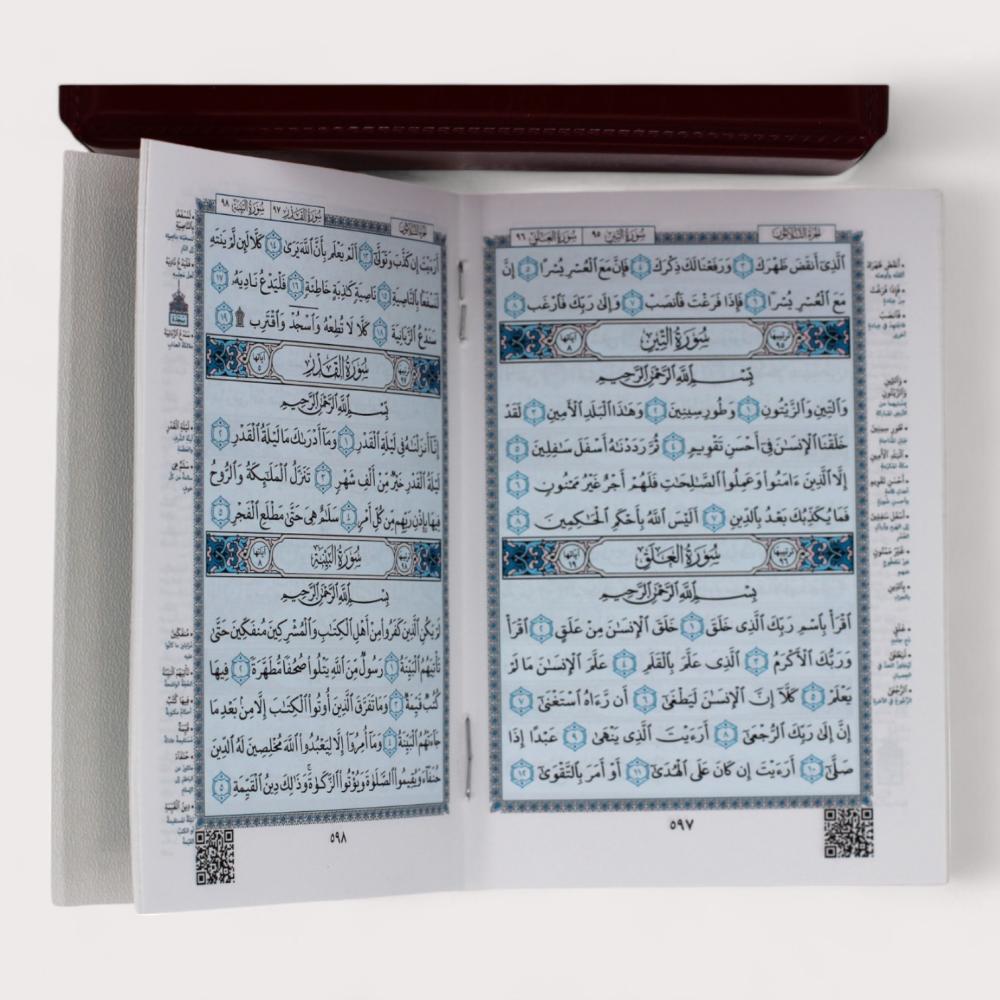 الجزء الثلاثون
سورة التين ٩٥
سورة العلق ٩٦
الَّذِي أَنقَضَ ظَهْرَكَ ٣ وَرَفَعْنَا لَكَ ذِكْرَكَ ٤ فَإِنَّ مَعَ الْعُسْرِ يُسْرًا ٥ إِنَّ
مَعَ الْعُسْرِ يُسْرًا ٦ فَإِذَا فَرَغْتَ فَانصَبْ ٧ وَإِلَىٰ رَبِّكَ فَارْغَب ٨
ترتيبها ٩٥ سُورَةُ التِّينِ آياتها ٨
بِسْمِ اللَّهِ الرَّحْمَٰنِ الرَّحِيمِ
وَالتِّينِ وَالزَّيْتُونِ ١ وَطُورِ سِينِينَ ٢ وَهَٰذَا الْبَلَدِ الْأَمِينِ ٣ لَقَدْ
خَلَقْنَا الْإِنسَٰنَ فِي أَحْسَنِ تَقْوِيمٍ ٤ ثُمَّ رَدَدْنَٰهُ أَسْفَلَ سَٰفِلِينَ ٥
إِلَّا الَّذِينَ ءَامَنُوا وَعَمِلُوا الصَّٰلِحَٰتِ فَلَهُمْ أَجْرٌ غَيْرُ مَمْنُونٍ ٦
فَمَا يُكَذِّبُكَ بَعْدُ بِالدِّينِ ٧ أَلَيْسَ اللَّهُ بِأَحْكَمِ الْحَٰكِمِينَ ٨
ترتيبها ٩٦ سُورَةُ الْعَلَقِ آياتها ١٩
بِسْمِ اللَّهِ الرَّحْمَٰنِ الرَّحِيمِ
اقْرَأْ بِاسْمِ رَبِّكَ الَّذِي خَلَقَ ١ خَلَقَ الْإِنسَٰنَ مِنْ عَلَقٍ ٢ اقْرَأْ
وَرَبُّكَ الْأَكْرَمُ ٣ الَّذِي عَلَّمَ بِالْقَلَمِ ٤ عَلَّمَ الْإِنسَٰنَ مَا لَمْ
يَعْلَمْ ٥ كَلَّا إِنَّ الْإِنسَٰنَ لَيَطْغَىٰ ٦ أَن رَّءَاهُ اسْتَغْنَىٰ ٧
إِنَّ إِلَىٰ رَبِّكَ الرُّجْعَىٰ ٨ أَرَءَيْتَ الَّذِي يَنْهَىٰ ٩ عَبْدًا إِذَا
صَلَّىٰ ١٠ أَرَءَيْتَ إِن كَانَ عَلَى الْهُدَىٰ ١١ أَوْ أَمَرَ بِالتَّقْوَىٰ ١٢
٥٩٧
الجزء الثلاثون
سورة القدر ٩٧
سورة البينة ٩٨
أَرَءَيْتَ إِن كَذَّبَ وَتَوَلَّىٰ ١٣ أَلَمْ يَعْلَم بِأَنَّ اللَّهَ يَرَىٰ ١٤ كَلَّا لَئِن لَّمْ يَنتَهِ
لَنَسْفَعًا بِالنَّاصِيَةِ ١٥ نَاصِيَةٍ كَٰذِبَةٍ خَاطِئَةٍ ١٦ فَلْيَدْعُ نَادِيَهُ ١٧
سَنَدْعُ الزَّبَانِيَةَ ١٨ كَلَّا لَا تُطِعْهُ وَاسْجُدْ وَاقْتَرِب ۩ ١٩
ترتيبها ٩٧ سُورَةُ الْقَدْرِ آياتها ٥
بِسْمِ اللَّهِ الرَّحْمَٰنِ الرَّحِيمِ
إِنَّا أَنزَلْنَٰهُ فِي لَيْلَةِ الْقَدْرِ ١ وَمَا أَدْرَىٰكَ مَا لَيْلَةُ الْقَدْرِ ٢
لَيْلَةُ الْقَدْرِ خَيْرٌ مِّنْ أَلْفِ شَهْرٍ ٣ تَنَزَّلُ الْمَلَٰئِكَةُ وَالرُّوحُ
فِيهَا بِإِذْنِ رَبِّهِم مِّن كُلِّ أَمْرٍ ٤ سَلَٰمٌ هِيَ حَتَّىٰ مَطْلَعِ الْفَجْرِ ٥
ترتيبها ٩٨ سُورَةُ الْبَيِّنَةِ آياتها ٨
بِسْمِ اللَّهِ الرَّحْمَٰنِ الرَّحِيمِ
لَمْ يَكُنِ الَّذِينَ كَفَرُوا مِنْ أَهْلِ الْكِتَٰبِ وَالْمُشْرِكِينَ مُنفَكِّينَ حَتَّىٰ
تَأْتِيَهُمُ الْبَيِّنَةُ ١ رَسُولٌ مِّنَ اللَّهِ يَتْلُوا صُحُفًا مُّطَهَّرَةً ٢ فِيهَا
كُتُبٌ قَيِّمَةٌ ٣ وَمَا تَفَرَّقَ الَّذِينَ أُوتُوا الْكِتَٰبَ إِلَّا مِن بَعْدِ مَا
جَاءَتْهُمُ الْبَيِّنَةُ ٤ وَمَا أُمِرُوا إِلَّا لِيَعْبُدُوا اللَّهَ مُخْلِصِينَ لَهُ الدِّينَ
حُنَفَاءَ وَيُقِيمُوا الصَّلَوٰةَ وَيُؤْتُوا الزَّكَوٰةَ وَذَٰلِكَ دِينُ الْقَيِّمَةِ ٥
٥٩٨